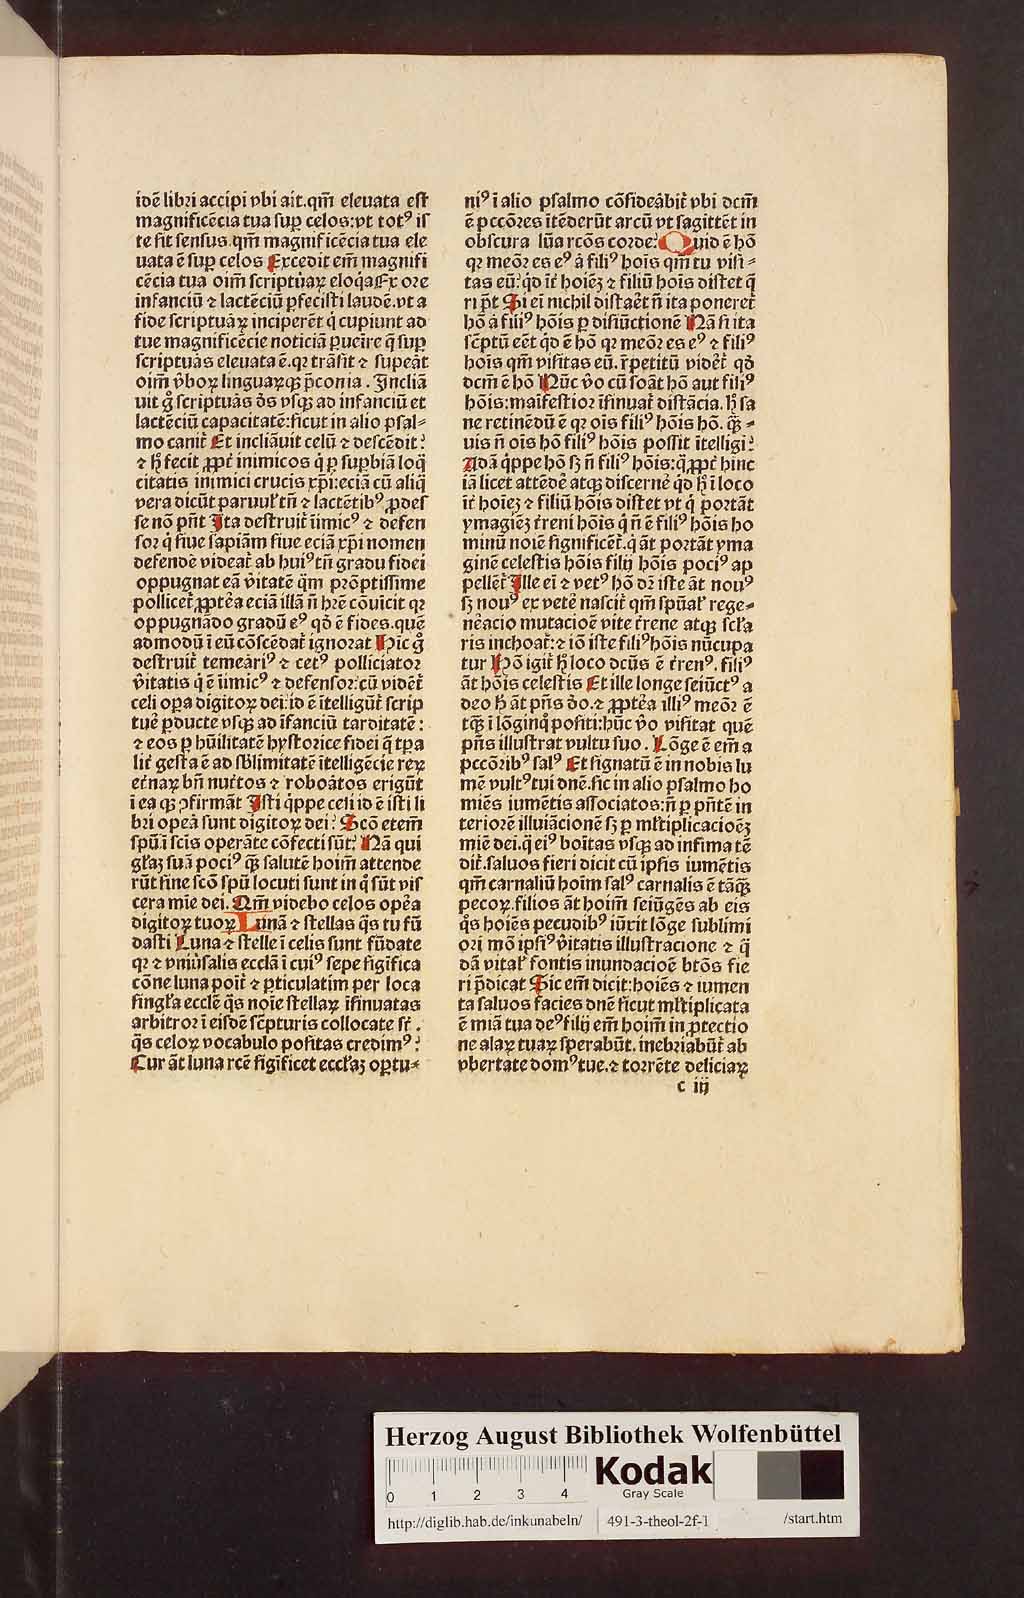 idē libri accipi vbi ait.qm̄ eleuata est
magnificēcia tua suꝑ celos:vt totꝰ is
te sit sensus.qm̄ magnificēcia tua ele
uata ē suꝑ celos Excedit em̄ magnifi
cēcia tua oim̄ scripturaꝝ eloq̄a Ex ore
infanciū ⁊ lactēciū ꝑfecisti laudē.vt a
fide scripturaꝝ inciperēt q̇ cupiunt ad
tue magnificēcie noticiā ꝑueīre q̄ suꝑ
scripturas eleuata ē.qꝛ trāsit ⁊ supeāt
oim̄ v̄boꝝ linguaꝝqꝫ p̄conia. Incliā
uit g̊ scripturas d̄s vsqꝫ ad infanciū et
lactēciū capacitatē:sicut in alio psal-
mo canit᷑ Et incliāuit celū ⁊ descēdit:
⁊ h̄ fecit ꝓpt᷑ inimicos q̇ ꝑ suꝑbiā loq̄
citatis inimici crucis xp̄i:eciā cū aliq̄
vera dicūt paruul᷑ tn̄ ⁊ lactētibꝰ ꝓdes
se nō pn̄t Ita destruit᷑ īimicꝰ ⁊ defen
sor q̇ siue sapiām siue eciā xp̄i nomen
defende videat᷑ ab huiꝰ tn̄ gradu fidei
oppugnat eā v̄itatē q̄m prōptissime
pollicet᷑ ꝓptea eciā illā n̄ hr̄e cōuīcit qꝛ
oppugnādo gradū eꝰ qd̄ ē fides.quē
admodū ī eū cōscēdat᷑ ignorat Hic g̊
destruit᷑ temeāriꝰ ⁊ cetꝰ polliciator
v̄itatis q̇ ē īimicꝰ ⁊ defensor:cū vidēt᷑
celi oꝑa digitoꝝ dei:id ē ītelligūt᷑ scrip
ture ꝑducte vsqꝫ ad īfanciū tarditatē:
⁊ eos ꝑ hūilitatē hystorice fidei q̄ tꝑa
lit᷑ gesta ē ad sblimitatē ītelligēcie reꝝ
et᷑naꝝ bn̄ nut᷑tos ⁊ roboātos erigūt
ī ea qꝫ ↄfirmāt Isti q̇ppe celi id ē isti li
bri oꝑea sunt digitoꝝ dei: Scō etem̄
spū ī scīs operāte cōfecti sūt: Nā qui
gl᷑aꝫ suā pociꝰ q̄ꝫ salutē hoim̄ attende
rūt sine scō spū locuti sunt in q̇ sūt vis
cera mīe dei. Qm̄ videbo celos oꝑea
digitoꝝ tuoꝝ Lunā ⁊ stellas q̄s tu fū
dasti Luna ⁊ stelle ī celis sunt fūdate
qꝛ ⁊ vniūsalis ecclā ī cuiꝰ sepe sigīfica
cōne luna poīt᷑ ⁊ ꝑticulatim per loca
singl᷑a eccl̄e q̄s noīe stellaꝝ īsinuatas
arbitror ī eisdē sc̄pturis collocate st᷑.
q̄s celoꝝ vocabulo positas credimꝰ:
Cur āt luna rc̄e sigīficet eccl᷑aꝫ oꝑtu-
niꝰ ī alio psalmo cōsideābit᷑ vbi dcm̄
ē pccōres ītēderūt arcū vt sagittēt in
obscura lūa rc̄os corde: Quid ē hō
qꝛ meōꝛ es eꝰ a᷑ filiꝰ hoīs qm̄ tu visi-
tas eū: q̇d īt᷑ hoīeꝫ ⁊ filiū hoīs distet q̄
ri p̄t Si eī nichil distaēt n̄ ita poneret᷑
hō a᷑ filiꝰ hōis ꝑ disiūctionē Nā si ita
sc̄ptū eēt q̇d ē hō qꝛ meōꝛ es eꝰ ⁊ filiꝰ
hoīs qm̄ visitas eū. r̄petitū vidēt᷑ qd̄
dcm̄ ē hō Nūc v̄o cū soāt hō aut filiꝰ
hōis:maīfestior īsinuat᷑ distācia. h̄ sa
ne retinēdū ē qꝛ oīs filiꝰ hōis hō. q̄ꝫ-
uis n̄ oīs hō filiꝰ hōis possit ītelligi:
Adā q̇ppe hō sꝫ n̄ filiꝰ hōis:q̄ꝓpt᷑ hinc
iā licet attēde atqꝫ discernē q̇d h̄ ī loco
īt᷑ hoīeꝫ ⁊ filiū hōis distet vt q̇ portāt
ymagīeꝫ t᷑reni hōis q̇ n̄ ē filiꝰ hōis ho
minū noīe significēt᷑.q̇ āt portāt yma
ginē celestis hōis filij hōis pociꝰ ap
pellēt᷑ Ille eī ⁊ vetꝰ hō dꝛ iste āt nouꝰ
sꝫ nouꝰ ex vetē nascit᷑ qm̄ spūal᷑ rege-
nēacio mutacioē vite t᷑rene atqꝫ scl᷑a
ris inchoat᷑:⁊ iō iste filiꝰ hōis nūcupa
tur Hō igit᷑ h̄ loco dcūs ē t᷑renꝰ. filiꝰ
āt hōis celestis Et ille longe seiūctꝰ a
deo h̄ āt pn̄s d̄o.⁊ ꝓptēa illiꝰ meōꝛ ē
tq̄ꝫ ī lōginq̄ positi:hūc v̄o visitat quē
pn̄s illustrat vultu suo. Lōge ē em̄ a
pccōribꝰ salꝰ Et signatū ē in nobis lu
mē vultꝰ tui dnē.sic in alio psalmo ho
mīēs iumētis associatos:n̄ ꝑ pn̄tē in
teriorē illuīacionē sꝫ ꝑ ml᷑tiplicacioēꝫ
mīe dei.q̇ eiꝰ boītas vsqꝫ ad infima tē
dit᷑.saluos fieri dicit cū ipsis iumētis
qm̄ carnaliū hoīm salꝰ carnalis ē tāq̄ꝫ
pecoꝝ.filios āt hoīm seiūgēs ab eis
q̊s hoīes pecudibꝰ iūxit lōge sublimi
ori mō ipsiꝰ v̄itatis illustracione ⁊ q̄
dā vital᷑ fontis inundacioē btōs fie
ri p̄dicat Sic em̄ dicit:hoīes ⁊ iumen
ta saluos facies dnē sicut ml᷑tiplicata
ē miā tua deꝰ filij em̄ hoīm in ꝓtectio
ne alaꝝ tuaꝝ sperabūt. inebriabūt᷑ ab
vbertate domꝰ tue.⁊ torrēte deliciaꝝ
c iij
Herzog August Bibliothek Wolfenbüttel
0 1 2 3 4
Kodak
Gray Scale
http://diglib.hab.de/inkunabeln/ 491-3-theol-2f-1 /start.htm